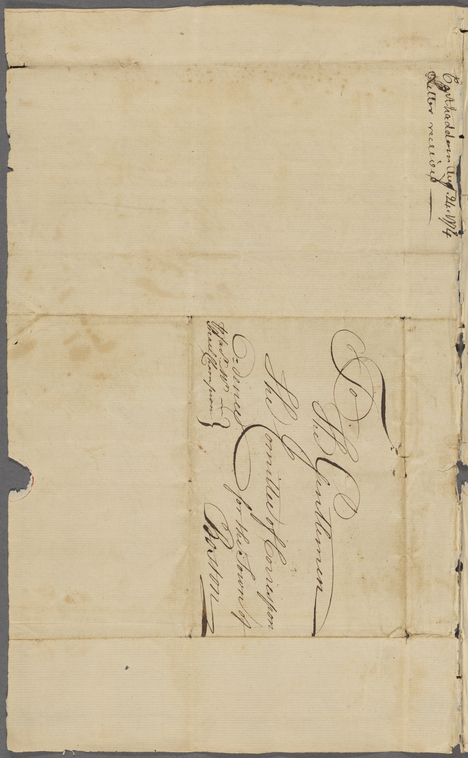 East haddam Aug. 24. 1774
Letter received
To
The Gentlemen
The Comittee of Correspon
dence for the Town of
Boston